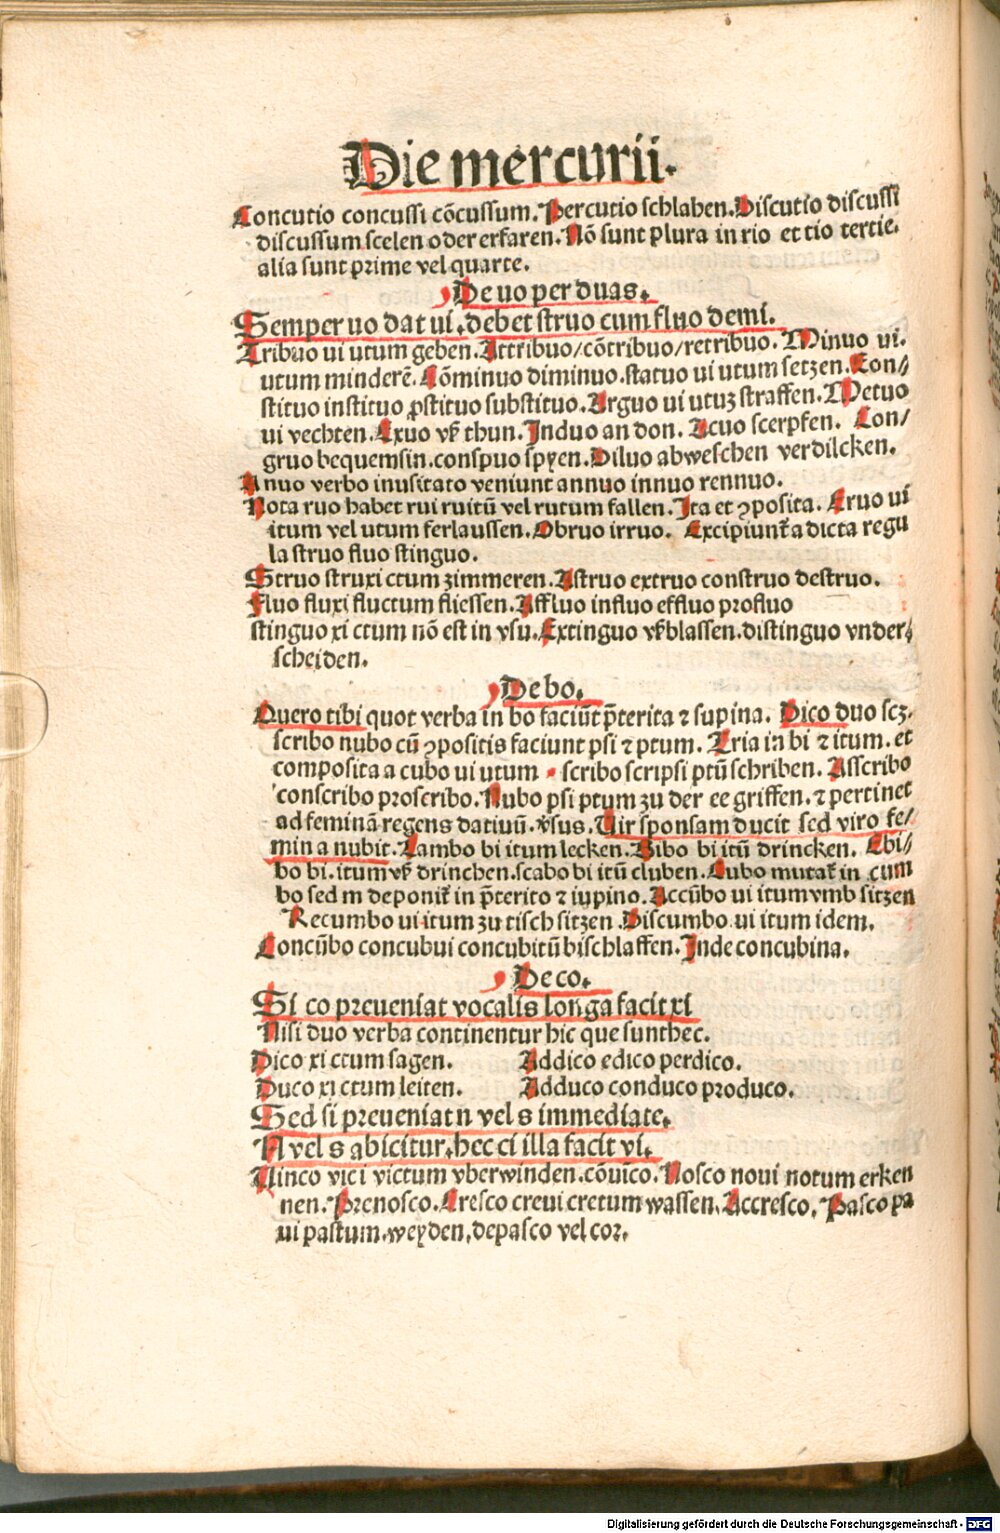 Die mercurii.
Concutio concussi cōcussum. Percutio schlahen. Discutio discussi
discussum scelen oder erfaren. Nō sunt plura in rio et tio tertie.
alia sunt prime vel quarte.
De uo per duas.
Semper uo dat ui. debet struo cum fluo demi.
Tribuo ui utum geben. Attribuo/cōtribuo/retribuo. Minuo ui.
utum minderē. Cōminuo diminuo. statuo ui utum setzen. Con//
stituo instituo ꝓstituo substituo. Arguo ui utuꝫ straffen. Metuo
ui vechten. Exuo vß thun. Induo an don. Acuo scerpfen. Con/
gruo bequemsin. conspuo spyen. Diluo abweschen verdilcken.
Anuo verbo inusitato veniunt annuo innuo rennuo.
Nota ruo habet rui ruitū vel rutum fallen. Ita et ꝯposita. Eruo ui
itum vel utum ferlaussen. Obruo irruo. Excipiunt᷑ a dicta regu
la struo fluo stinguo.
Struo struxi ctum zimmeren. Astruo extruo construo destruo.
Fluo fluxi fluctum fliessen. Affluo influo effluo profluo
stinguo xi ctum nō est in vsu. Extinguo vß blassen. distinguo vnder/
scheiden.
De bo.
Quero tibi quot verba in bo faciūt p̄terita ⁊ supina. Dico duo scꝫ.
scribo nubo cū ꝯpositis faciunt psi ⁊ ptum. Tria in bi ⁊ itum. et
composita a cubo ui utum scribo scripsi ptū schriben. Asscribo
conscribo proscribo. Nubo psi ptum zu der ee griffen. ⁊ pertinet
ad feminā regens datiuū. v̄sus. Uir sponsam ducit sed viro fe/
mina nubit. Lambo bi itum lecken. Bibo bi itū drincken. Ebi//
bo bi. itum vß drinchen. scabo bi itū cluben. Cubo mutat᷑ in cum
bo sed m deponit᷑ in p̄terito ⁊ supino. Accūbo ui itum vmb sitzen
Recumbo ui itum zu tisch sitzen. Discumbo ui itum idem.
Concūbo concubui concubitū bischlaffen. Inde concubina.
De co.
Si co preueniat vocalis longa facit xi
Nisi duo verba continentur hic que sunt hec.
Dico xi ctum sagen. Addico edico perdico.
Duco xi ctum leiten. Adduco conduco produco.
Sed si preueniat n vel s immediate.
N vel s abicitur. hec ci illa facit vi.
Uinco vici victum vberwinden. cōuīco. Nosco noui notum erken
nen. Prenosco. Cresco creui cretum wassen. Accresco. Pasco pa
ui pastum. weyden. depasco vel cor.
Digitalisierung gefördert durch die Deutsche Forschungsgemeinschaft - DFG